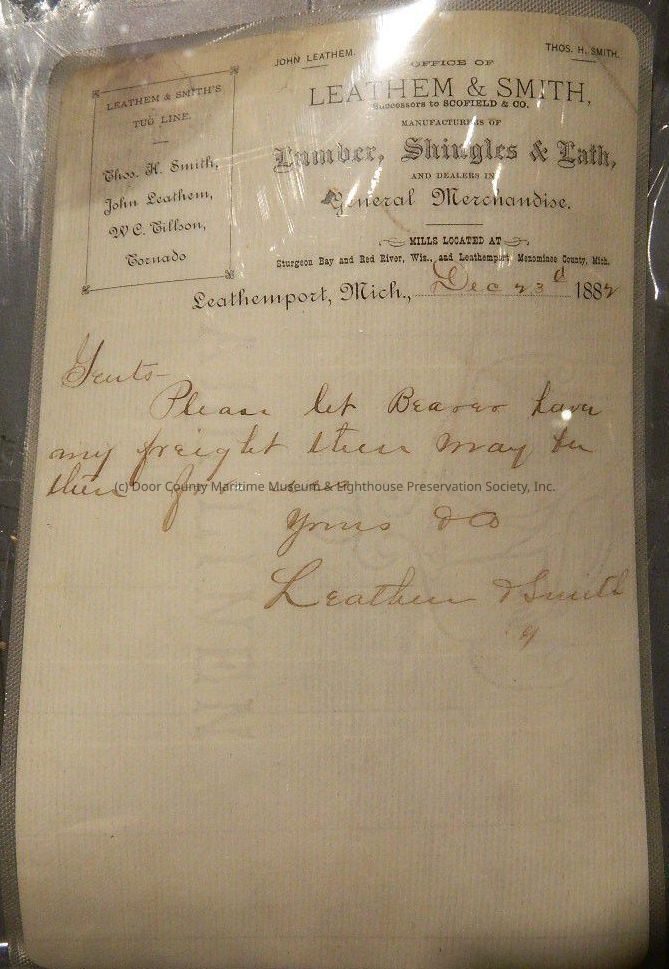 JOHN LEATHEM. THOS. H. SMITH.
OFFICE OF
LEATHEM & SMITH,
Successors to SCOFIELD & CO.
MANUFACTURERS OF
Lumber, Shingles & Lath,
AND DEALERS IN
General Merchandise.
MILLS LOCATED AT
Sturgeon Bay and Red River, Wis., and Leathemport, Menominee County, Mich.
LEATHEM & SMITH'S
TUG LINE.
Thos. H. Smith,
John Leathem,
W C. Tillson,
Tornado
Leathemport, Mich., Dec 23d 1882
Gents-
Please let Beaver have
my freight there may be
there for
Yours &c
Leathem & Smith
(c) Door County Maritime Museum & Lighthouse Preservation Society, Inc.